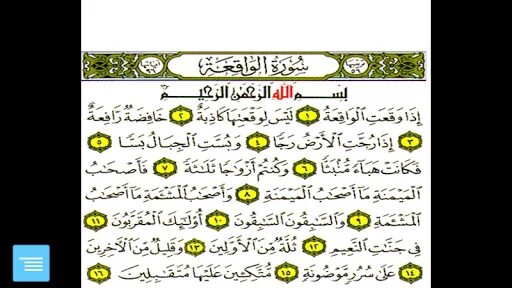 سُورَةُ الوَاقِعَة
بِسْمِ اللَّهِ الرَّحْمَنِ الرَّحِيمِ
إِذَا وَقَعَتِ الْوَاقِعَةُ ١ لَيْسَ لِوَقْعَتِهَا كَاذِبَةٌ ٢ خَافِضَةٌ رَّافِعَةٌ
٣ إِذَا رُجَّتِ الْأَرْضُ رَجًّا ٤ وَبُسَّتِ الْجِبَالُ بَسًّا ٥
فَكَانَتْ هَبَاءً مُّنْبَثًّا ٦ وَكُنْتُمْ أَزْوَاجًا ثَلَاثَةً ٧ فَأَصْحَابُ
الْمَيْمَنَةِ مَا أَصْحَابُ الْمَيْمَنَةِ ٨ وَأَصْحَابُ الْمَشْئَمَةِ مَا أَصْحَابُ
الْمَشْئَمَةِ ٩ وَالسَّابِقُونَ السَّابِقُونَ ١٠ أُولَئِكَ الْمُقَرَّبُونَ ١١
فِي جَنَّاتِ النَّعِيمِ ١٢ ثُلَّةٌ مِّنَ الْأَوَّلِينَ ١٣ وَقَلِيلٌ مِّنَ الْآخِرِينَ
١٤ عَلَى سُرُرٍ مَّوْضُونَةٍ ١٥ مُّتَّكِئِينَ عَلَيْهَا مُتَقَابِلِينَ ١٦